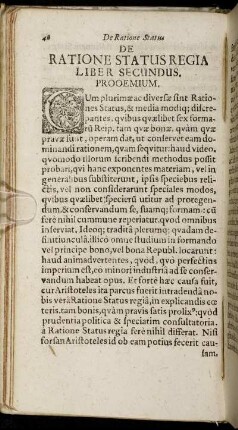 48 De Ratione Status
DE
RATIONE STATUS REGIA
LIBER SECUNDUS.
PROOEMIUM.
CUm plurimæ ac diversæ sint Ratio-
nes Status, & media modiq; discre-
pantes, quibus quælibet sex forma-
rũ Reip. tam quæ bonæ, quàm quæ
pravæ sunt, operam dat, ut conservet eam do-
minandi rationem, quam sequitur: haud video,
quomodo illorum scribendi methodus possit
probari, qui hanc exponentes materiam, vel in
generabus substiterunt, ipsis speciebus reli-
ctis, vel non considerarunt speciales modos,
quibus quælibet specierũ utitur ad protegen-
dum, & conservandum se, suamq; formam: cũ
ferè nihil cummune reperiatur, quod omnibus
inserviat, Ideoq; tradita plerumq; quadam de-
stinatinculâ, illicò omne studium in formando
vel principe bono, vel bona Republ. locarunt:
haud animadvertentes, quod, quò perfectius
imperium est, eò minori industriâ ad se conser-
vandum habeat opus. Et fortè hæc causa fuit,
cur Aristoteles ita parcus fuerit in tradendâ no-
bis verâ Ratione Status regiâ, in explicandis cœ-
teris, tam bonis, quàm pravis satis prolix⁹: quòd
prudentia politica & speciatim consultatoria,
à Ratione Status regia ferè nihil differat. Nisi
forsan Aristoteles id ob eam potius fecerit cau-
sam,